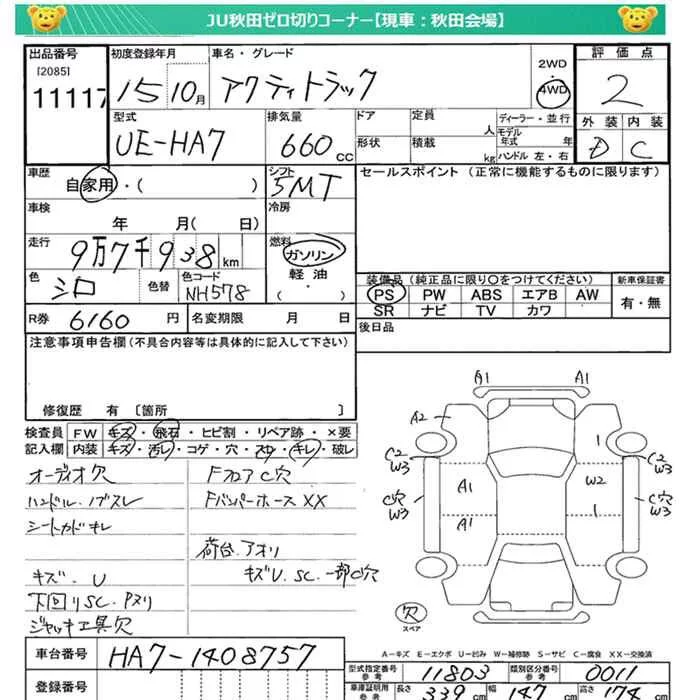 JU秋田ゼロ切りコーナー【現車：秋田会場】
出品番号 初度登録年月 車名・グレード 2WD 評価点
[2085] 11117 15 10月 アクティトラック 4WD 2
型式 排気量 ドア 定員 人 ディーラー・並行 外装 内装
UE-HA7 660 cc 形状 積載 kg モデル年式 年 ハンドル 左・右 D C
車歴 自家用・( ) シフト 5MT セールスポイント (正常に機能するものに限ります)
車検 年 月( 日) 冷房
走行 9万7千938 km 燃料 ガソリン
色 シロ 色替 色コード NH578 軽油 ・( ) 装備品 (純正品に限り〇をつけてください) 新車保証書
PS PW ABS エアB AW 有・無
SR ナビ TV カワ
R券 6160 円 名変期限 月 日 後日品
注意事項申告欄 (不具合内容等は具体的に記入して下さい)
修復歴 有 〔箇所 〕
検査員 FW キズ・飛石・ヒビ割・リペア跡・×要
記入欄 内装 キズ・汚レ・コゲ・穴・スレ・キレ・破レ
オーディオ欠 FフロアC穴
ハンドル.ノブスレ FバンパーホースXX
シートカドキレ
荷台.アオリ
キズ.U キズU.SC.一部C穴
下回リSC.Pヌリ
ジャッキ工具欠
A1 A1
A2 1
C2 W3 C2 W3
A1 W2
C穴 W3 C穴 W3
A1 1
欠
スペア
A－キズ E－エクボ U－凹み W－補修跡 S－サビ C－腐食 XX－交換済
車台番号 HA7-1408757
型式指定番号 参考 11803 類別区分番号 参考 0011
登録番号 車庫証明用 参考 長さ 339 cm 幅 147 cm 高さ 174 cm